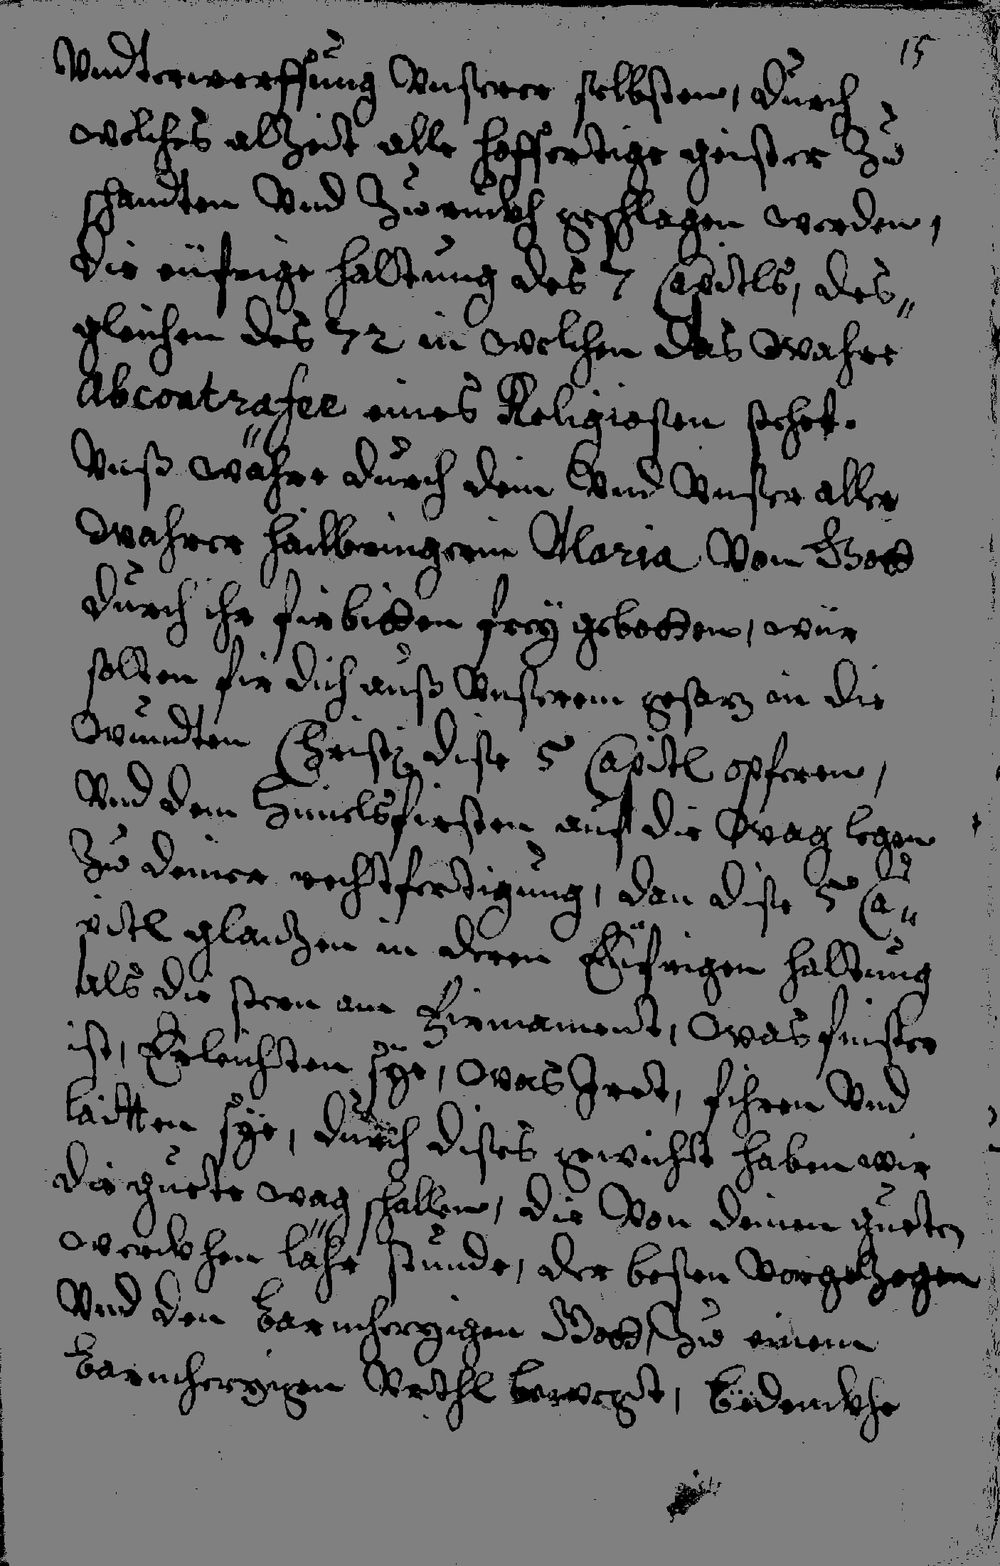 15
Vndterwerffung Vnserer selbsten, durch
welches alzeit alle hoffertige geister Zu
schandten Vnd Zu ruckh geschlagen werden,
die eüfrige haltung des 7 Capitls, des„
gleichen des 72 in welchen das wahre
Abcontrafee eines Religiosen stehet.
Vnß wahre durch dein Vnd Vnser aller
wahrer hailbringerin Maria Von Gott
durch ihr fürbitten frey gebetten, wür
solten für dich auß Vnserem gesaz in die
wundten Christi dise 5 Capitl opferen,
Vnd dem Himelsfirsten auf die Wag legen
Zu deiner rechtfertigung, dan dise 5 Ca„
pitl glantzen in deren Eüfrigen haltung
als die stern am Firmament, was finster
ist, Erleichten sÿe, was Irret, fihren Vnd
laitten sÿe, durch dises gewicht haben wir
die guete wag schallen, die Von deinen gueten
werckhen lähr stunde, der besten Vorgezogen
Vnd den barmherzigen Gott, Zu einem
barmherzigen Vrthl bewegt, bedenckhe